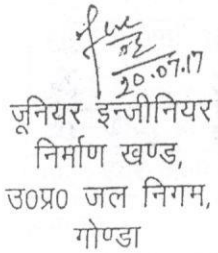 20.07.17
जूनियर इन्जीनियर
निर्माण खण्ड,
उ०प्र० जल निगम,
गोण्डा